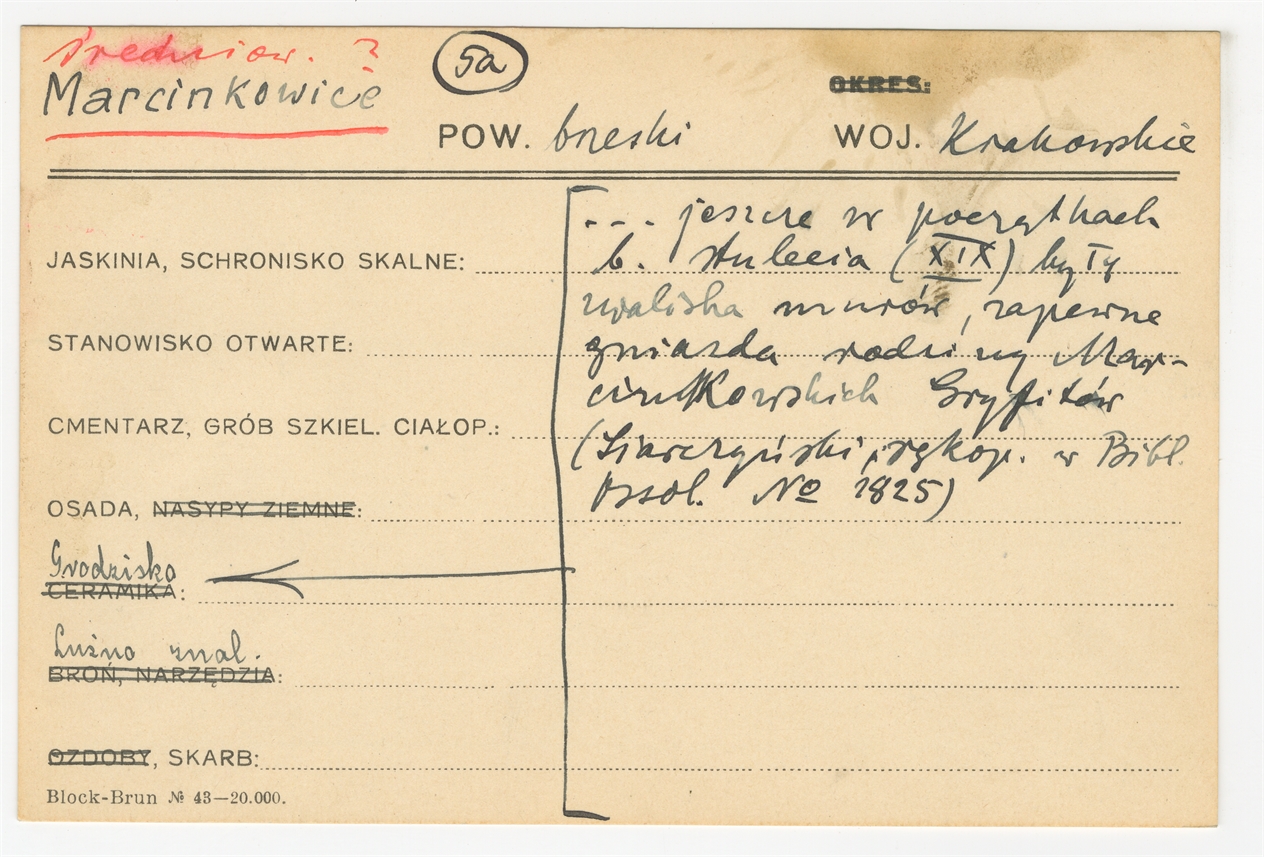 średniow. ?
Marcinkowice
5a
OKRES:
POW. brzeski
WOJ. Krakowskie
... jeszcze w początkach
b. stulecia (XIX) były
JASKINIA, SCHRONISKO SKALNE:
zwaliska murów, zapewne
STANOWISKO OTWARTE:
gniazda rodziny Mar-
cinkowskich Gryfitów
CMENTARZ, GRÓB SZKIEL. CIAŁOP.:
(Siarczyński, rękop. w Bibl.
Ossol. № 1825)
OSADA, NASYPY ZIEMNE:
Grodzisko
CERAMIKA:
Luźno znal.
BROŃ, NARZĘDZIA:
OZDOBY, SKARB:
Block-Brun № 43—20.000.